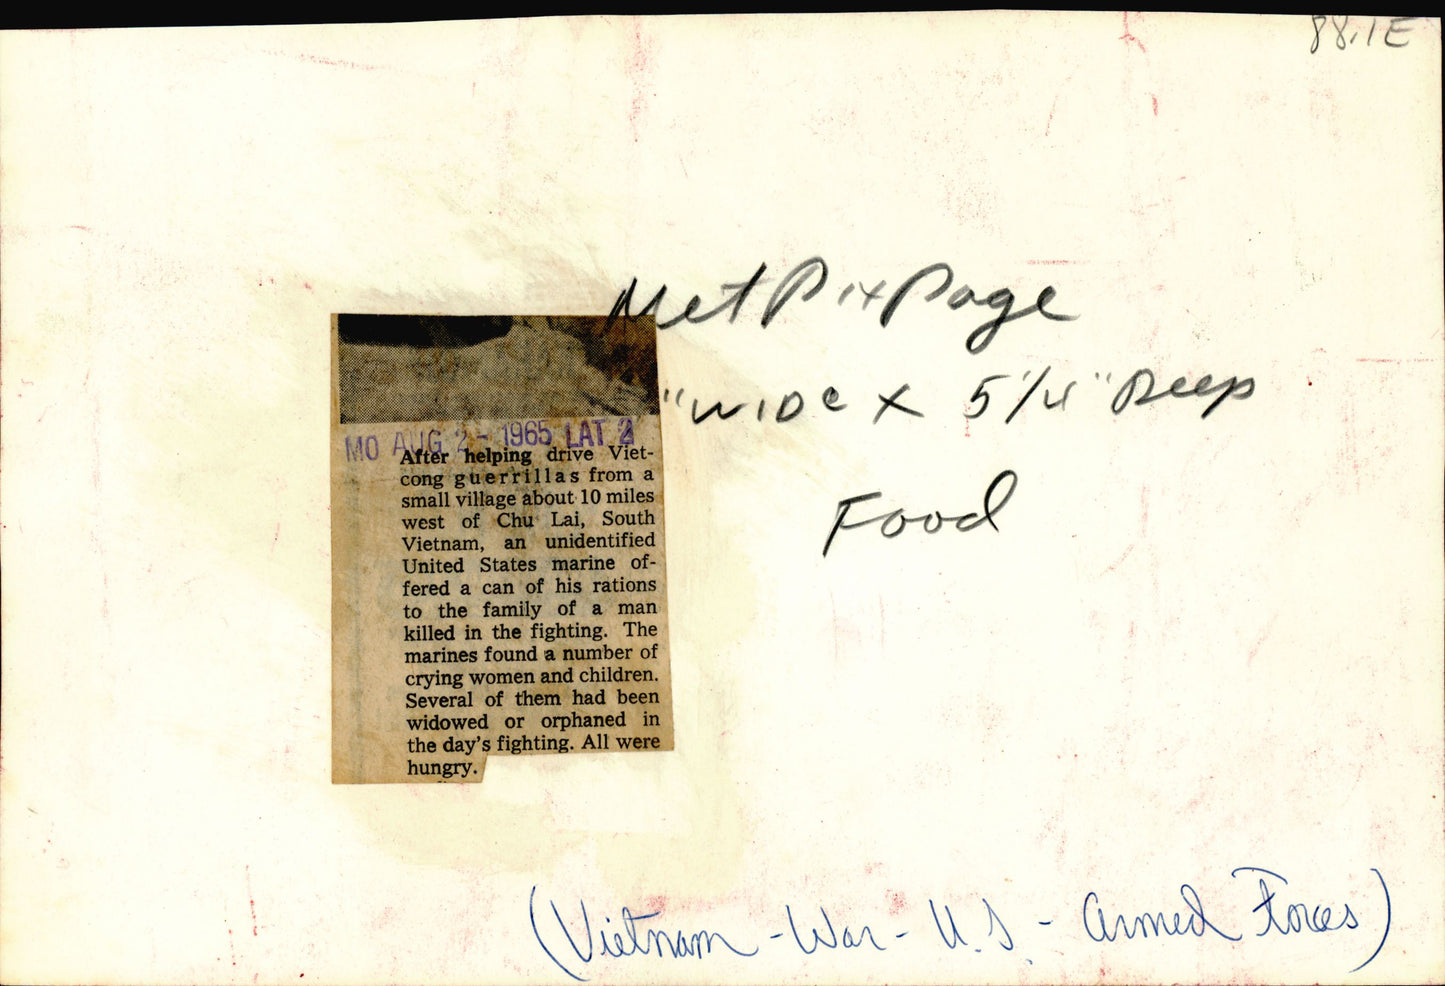 88.1E
Met Pix Page
"WIDE X 5 1/4" Deep
Food
MO AUG 2 - 1965 LAT 2
After helping drive Viet-
cong guerrillas from a
small village about 10 miles
west of Chu Lai, South
Vietnam, an unidentified
United States marine of-
fered a can of his rations
to the family of a man
killed in the fighting. The
marines found a number of
crying women and children.
Several of them had been
widowed or orphaned in
the day's fighting. All were
hungry.
(Vietnam - War - U.S. - Armed Forces)